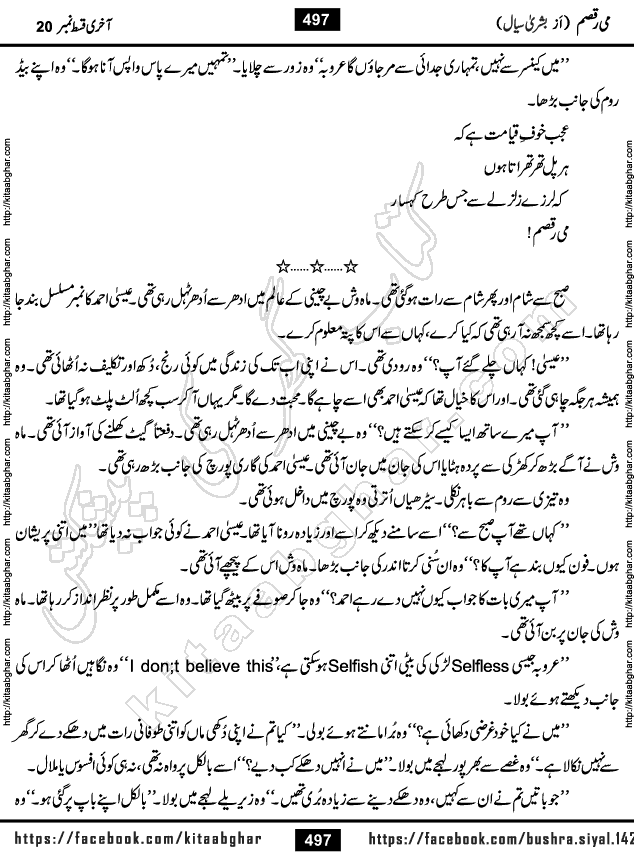 می رقصم (از بشریٰ سیال) 497 آخری قسط نمبر 20
’’میں کینسر سے نہیں، تمہاری جدائی سے مر جاؤں گا عروبہ‘‘ وہ زور سے چلایا۔ ’’تمہیں میرے پاس واپس آنا ہوگا۔‘‘ وہ اپنے بیڈ
روم کی جانب بڑھا۔
عجب خوفِ قیامت ہے کہ
ہر پل تھر تھراتا ہوں
کہ لرزے زلزلے سے جس طرح کہسار
می رقصم!
☆......☆......☆
صبح سے شام اور پھر شام سے رات ہو گئی تھی۔ ماہ وش بے چینی کے عالم میں ادھر سے اُدھر ٹہل رہی تھی۔ عیسیٰ احمد کا نمبر مسلسل بند جا
رہا تھا۔ اسے کچھ سمجھ نہ آ رہی تھی کہ کیا کرے، کہاں سے اس کا پتہ معلوم کرے۔
’’عیسیٰ! کہاں چلے گئے آپ؟‘‘ وہ رو دی تھی۔ اس نے اپنی اب تک کی زندگی میں کوئی رنج، دُکھ اور تکلیف نہ اُٹھائی تھی۔ وہ
ہمیشہ ہر جگہ چاہی گئی تھی۔ اور اس کا خیال تھا کہ عیسیٰ احمد بھی اسے چاہے گا۔ محبت دے گا۔ مگر یہاں آ کر سب کچھ اُلٹ پلٹ ہو گیا تھا۔
’’آپ میرے ساتھ ایسا کیسے کر سکتے ہیں؟‘‘ وہ بے چینی میں ادھر سے اُدھر ٹہل رہی تھی۔ دفعتاً گیٹ کھلنے کی آواز آئی تھی۔ ماہ
وش نے آگے بڑھ کر کھڑکی سے پردہ ہٹایا اس کی جان میں جان آئی تھی۔ عیسیٰ احمد کی گاری پورچ کی جانب بڑھ رہی تھی۔
وہ تیزی سے روم سے باہر نکلی۔ سیڑھیاں اُترتی وہ پورچ میں داخل ہوئی تھی۔
’’کہاں تھے آپ صبح سے؟‘‘ اسے سامنے دیکھ کر اسے اور زیادہ رونا آیا تھا۔ عیسیٰ احمد نے کوئی جواب نہ دیا تھا ’’میں اتنی پریشان
ہوں۔ فون کیوں بند ہے آپ کا؟‘‘ وہ ان سُنی کرتا اندر کی جانب بڑھا۔ ماہ وش اس کے پیچھے آئی تھی۔
’’آپ میری بات کا جواب کیوں نہیں دے رہے احمد؟‘‘ وہ جا کر صوفے پر بیٹھ گیا تھا۔ وہ اسے مکمل طور پر نظر انداز کر رہا تھا۔ ماہ
وش کی جان پر بن آئی تھی۔
’’عروبہ جیسی Selfless لڑکی کی بیٹی اتنی Selfish ہو سکتی ہے، ’’I don;t believe this‘‘ وہ نگاہیں اُٹھا کر اس کی
جانب دیکھتے ہوئے بولا۔
’’میں نے کیا خود غرضی دکھائی ہے؟‘‘ وہ بُرا مانتے ہوئے بولی۔ ’’کیا تم نے اپنی دُکھی ماں کو اتنی طوفانی رات میں دھکے دے کر گھر
سے نہیں نکالا ہے۔‘‘ وہ غصے سے بھرپور لہجے میں بولا۔ ’’میں نے انہیں دھکے کب دیے؟‘‘ اسے بالکل پرواہ نہ تھی، نہ ہی کوئی افسوس یا ملال۔
’’جو باتیں تم نے ان سے کہیں، وہ دھکے دینے سے زیادہ بُری تھیں۔‘‘ وہ زہریلے لہجے میں بولا۔ ’’بالکل اپنے باپ پر گئی ہو۔‘‘ وہ
https://facebook.com/kitaabghar 497 https://facebook.com/bushra.siyal.142
http://kitaabghar.com http://kitaabghar.com http://kitaabghar.com http://kitaabghar.com http://kitaabghar.com http://kitaabghar.com
http://kitaabghar.com http://kitaabghar.com http://kitaabghar.com http://kitaabghar.com http://kitaabghar.com http://kitaabghar.com
کتاب گھر کی پیشکش
kitaabghar.com